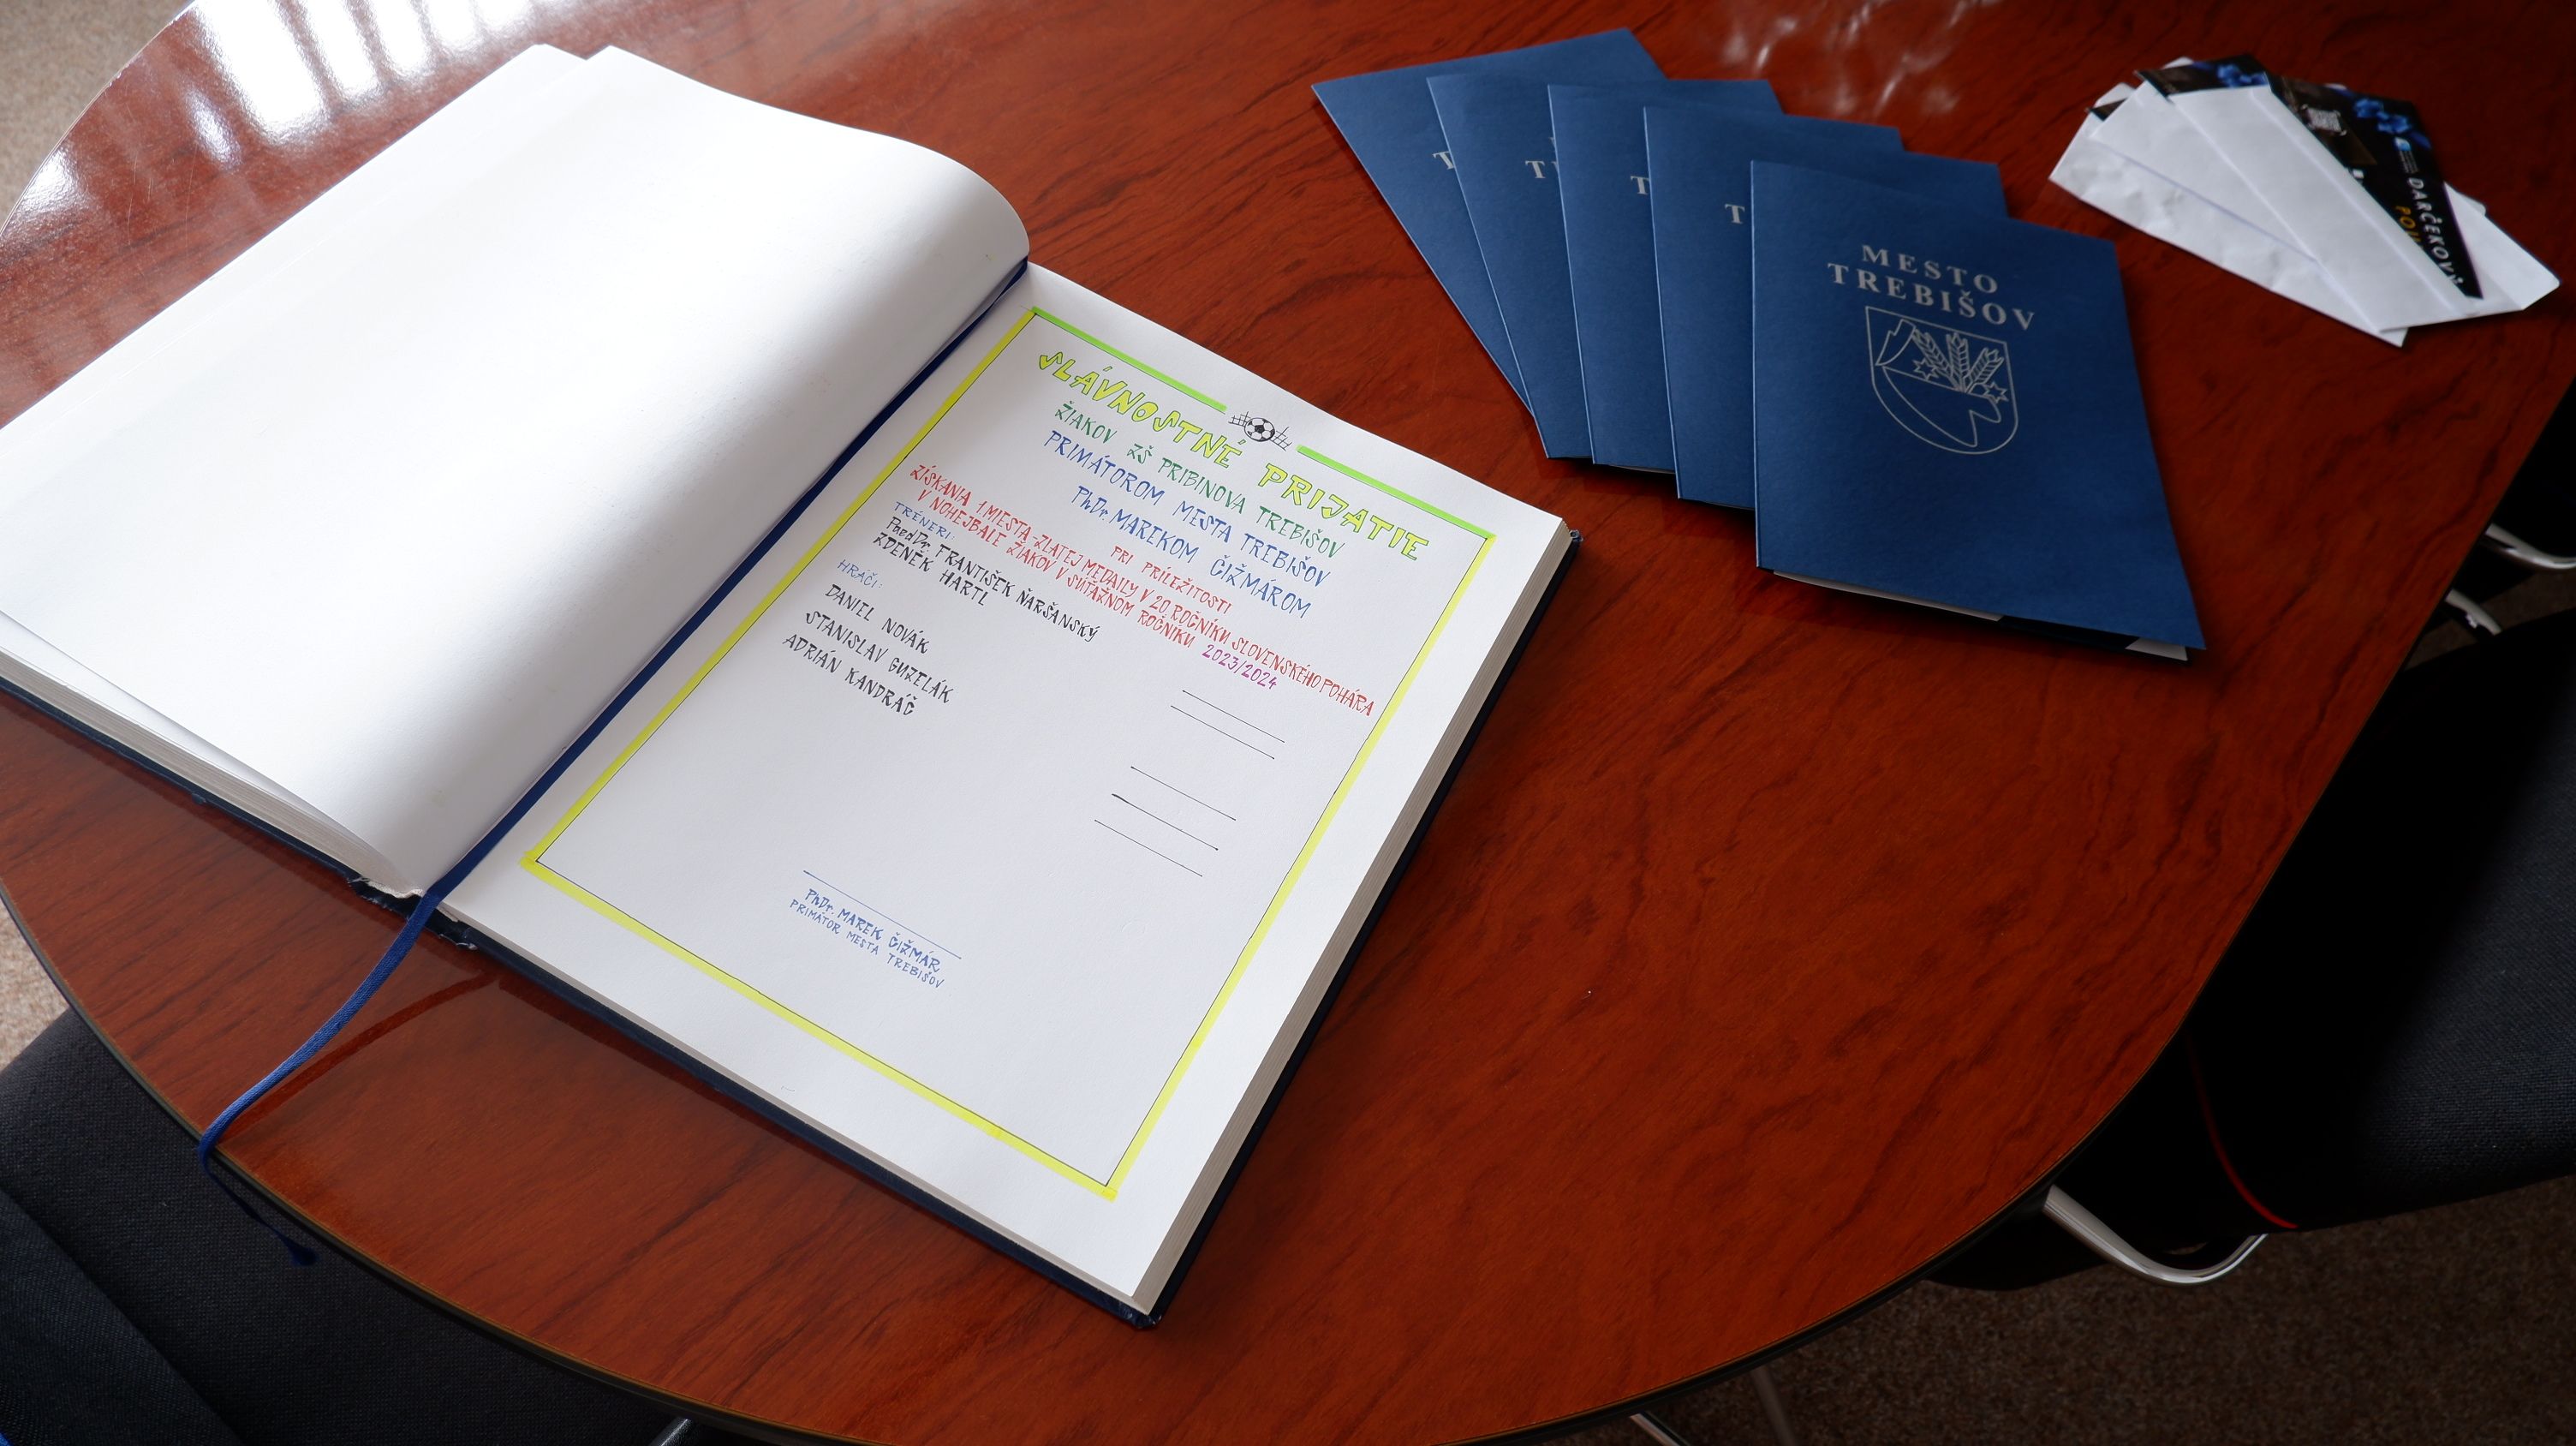 SLÁVNOSTNÉ PRIJATIE
ŽIAKOV ZŠ PRIBINOVA TREBIŠOV
PRIMÁTOROM MESTA TREBIŠOV
PhDr. MAREKOM ČIŽMÁROM
PRI PRÍLEŽITOSTI
ZÍSKANIA 1.MIESTA-ZLATEJ MEDAILY V 20 ROČNÍKU SLOVENSKÉHO POHÁRA
V NOHEJBALE ŽIAKOV V SÚŤAŽNOM ROČNÍKU 2023/2024
TRÉNERI:
PaedDr. FRANTIŠEK ŇARŠANSKÝ
ZDENĚK HARTL
HRÁČI:
DANIEL NOVÁK
STANISLAV GUZELÁK
ADRIÁN KANDRÁČ
PhDr. MAREK ČIŽMÁR
PRIMÁTOR MESTA TREBIŠOV
T
T
T
T
MESTO
TREBIŠOV
DARČEKOVÝ